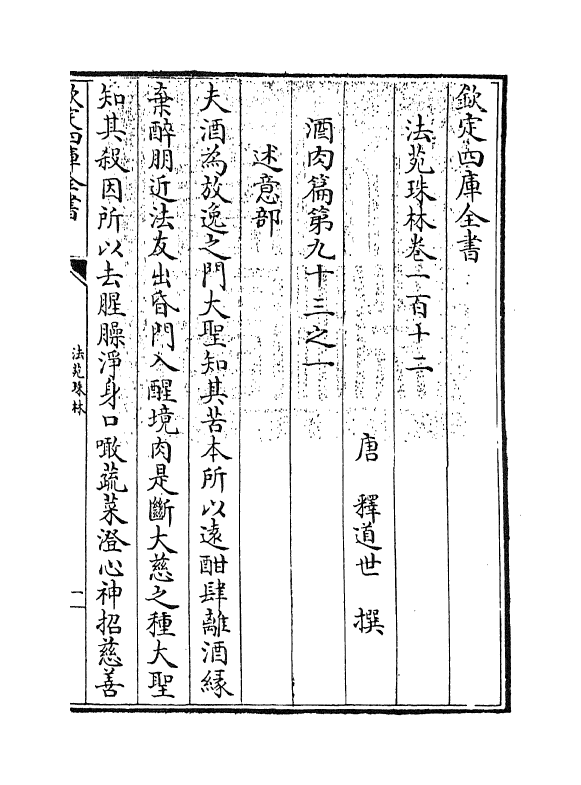 欽定四庫全書
法苑珠林卷一百十二
唐 釋道世 撰
酒肉篇第九十三之一
述意部
夫酒為放逸之門大聖知其苦本所以遠酣肆離酒緣
棄醉朋近法友出昏門入醒境肉是斷大慈之種大聖
知其殺因所以去腥臊淨身口噉蔬菜澄心神招慈善
欽定四庫全書
法苑珠林